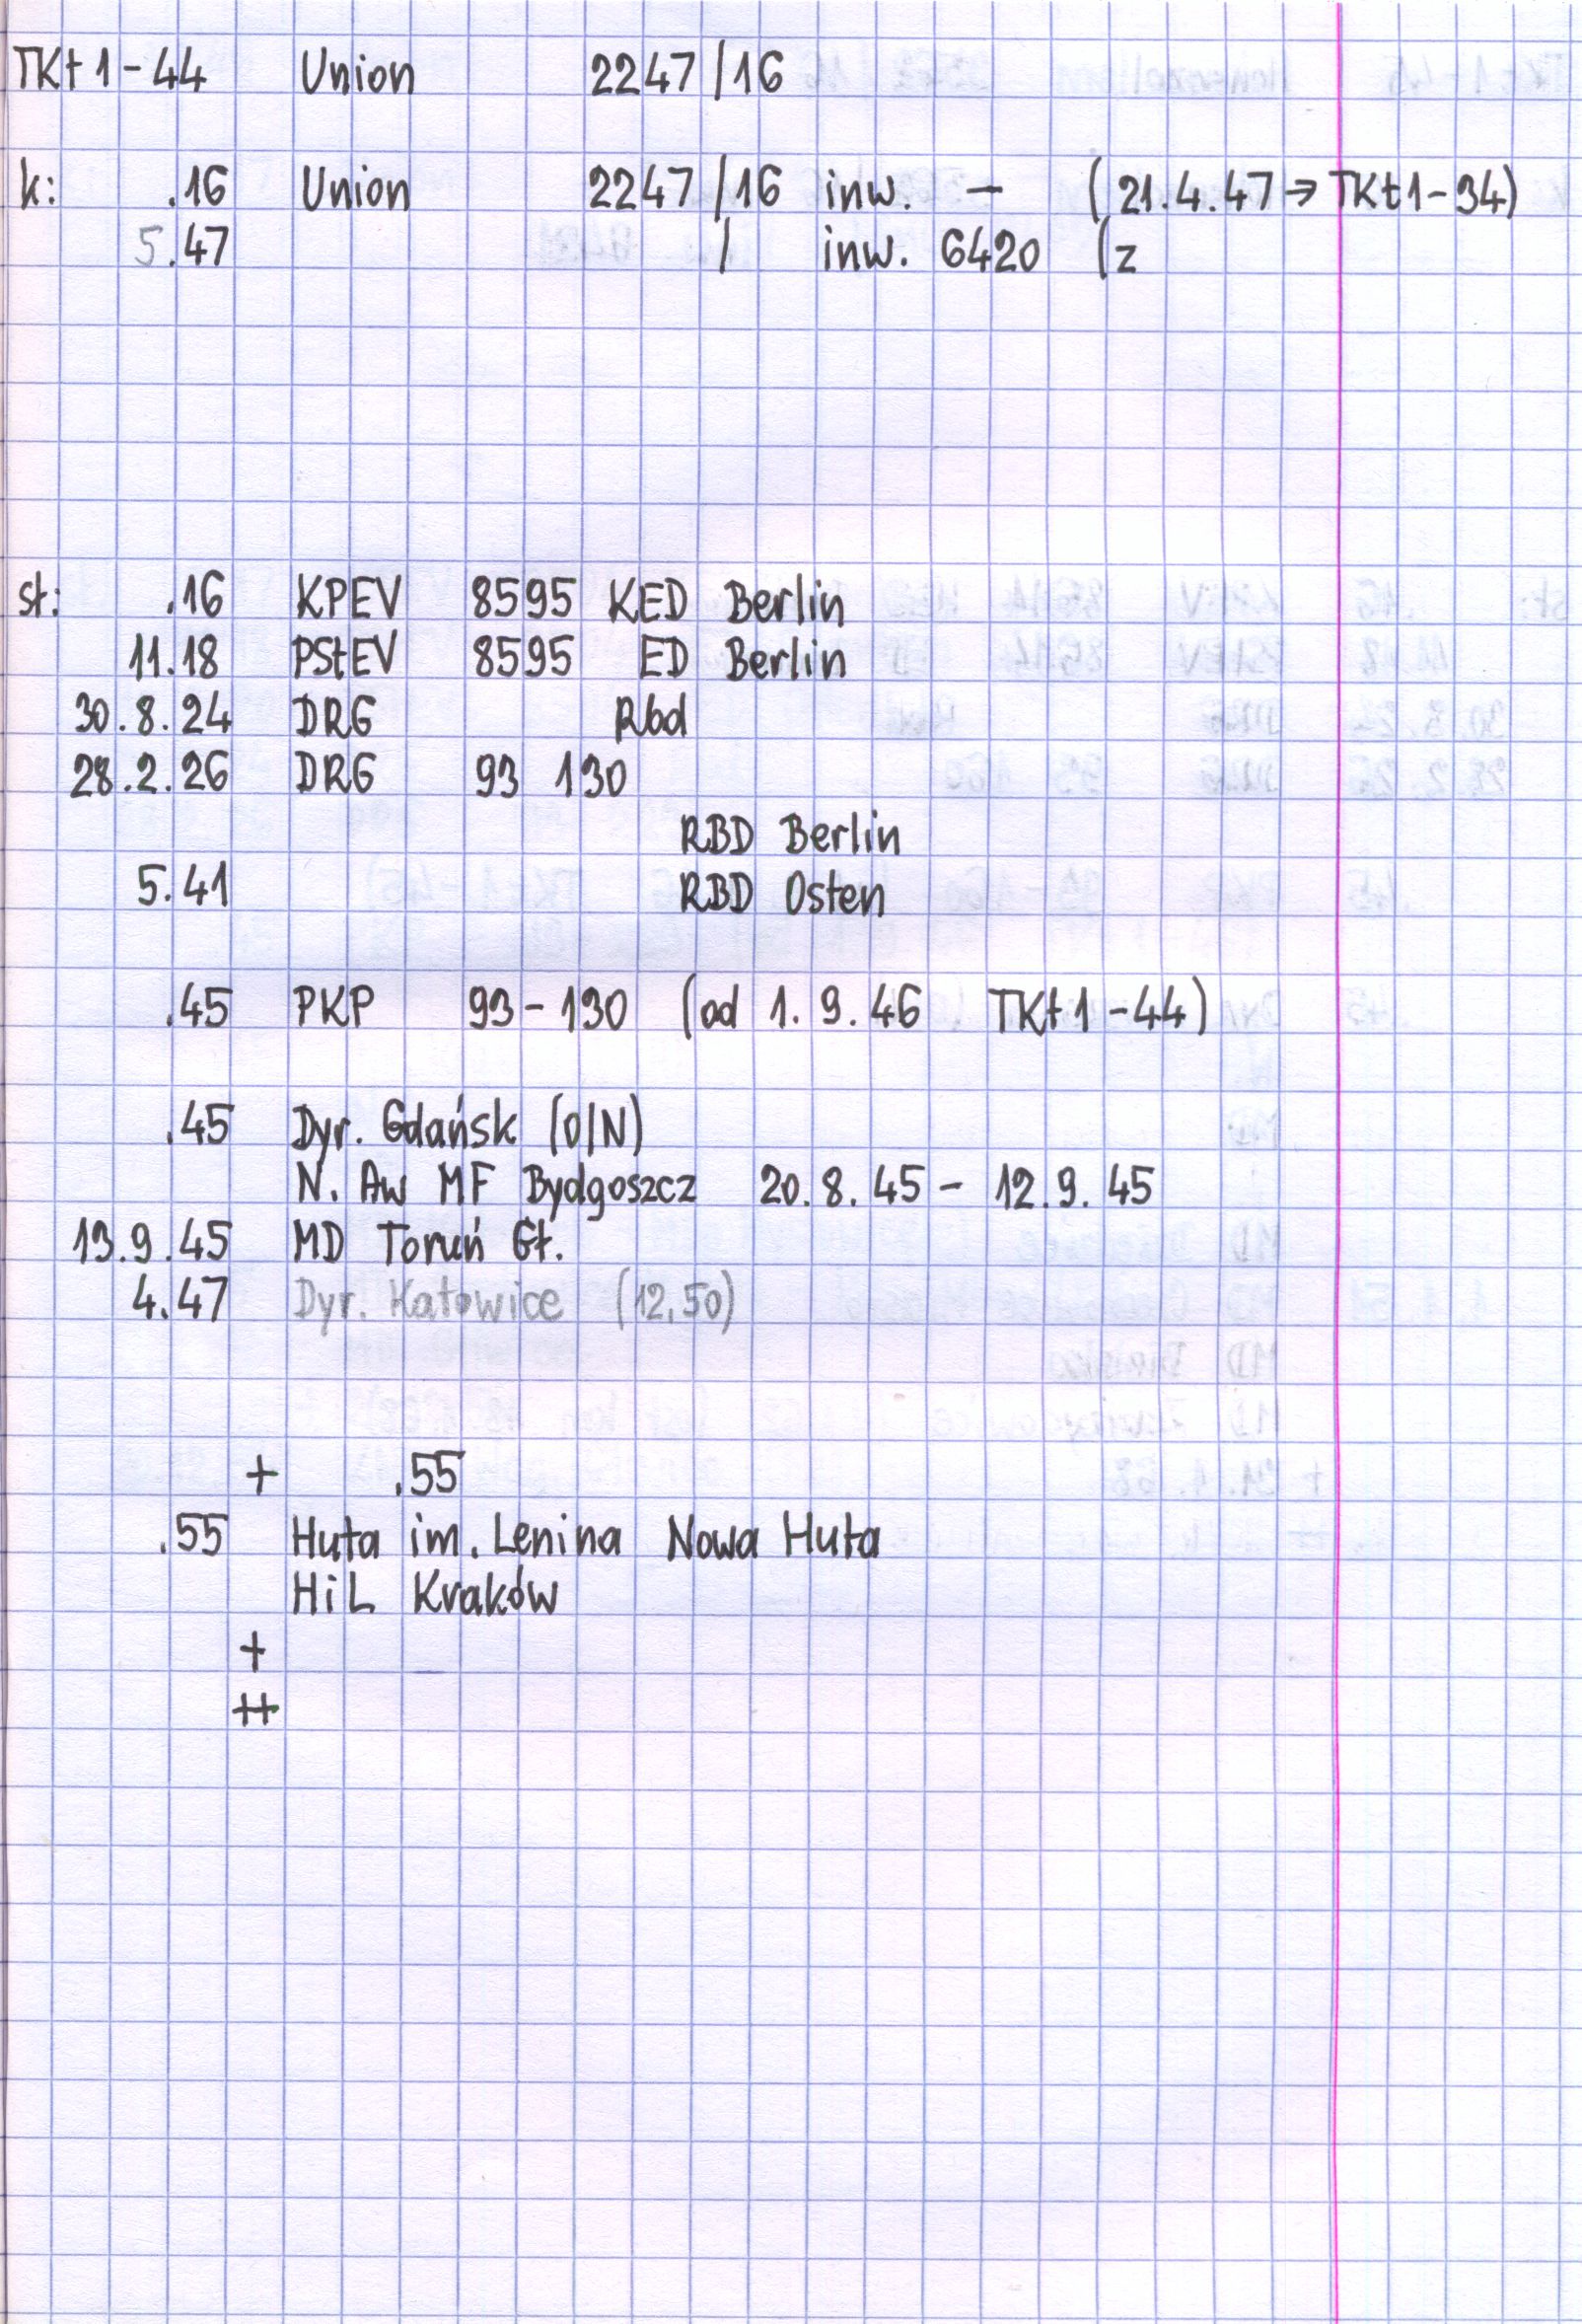 TKt1-44 Union 2247/16
k: .16 Union 2247/16 inw. – (21.4.47→TKt1-94)
5.47 / inw. 6420 (z
st: .16 KPEV 8595 KED Berlin
11.18 PStEV 8595 ED Berlin
30.8.24 DRG Rbd
28.2.26 DRG 93 130
RBD Berlin
5.41 RBD Osten
.45 PKP 93-130 (od 1.9.46 TKt1-44)
.45 Dyr. Gdańsk (O/N)
N. Aw MF Bydgoszcz 20.8.45 - 12.9.45
13.9.45 MD Toruń Gł.
4.47 Dyr. Katowice (12,50)
+ .55
.55 Huta im. Lenina Nowa Huta
HiL Kraków
+
++